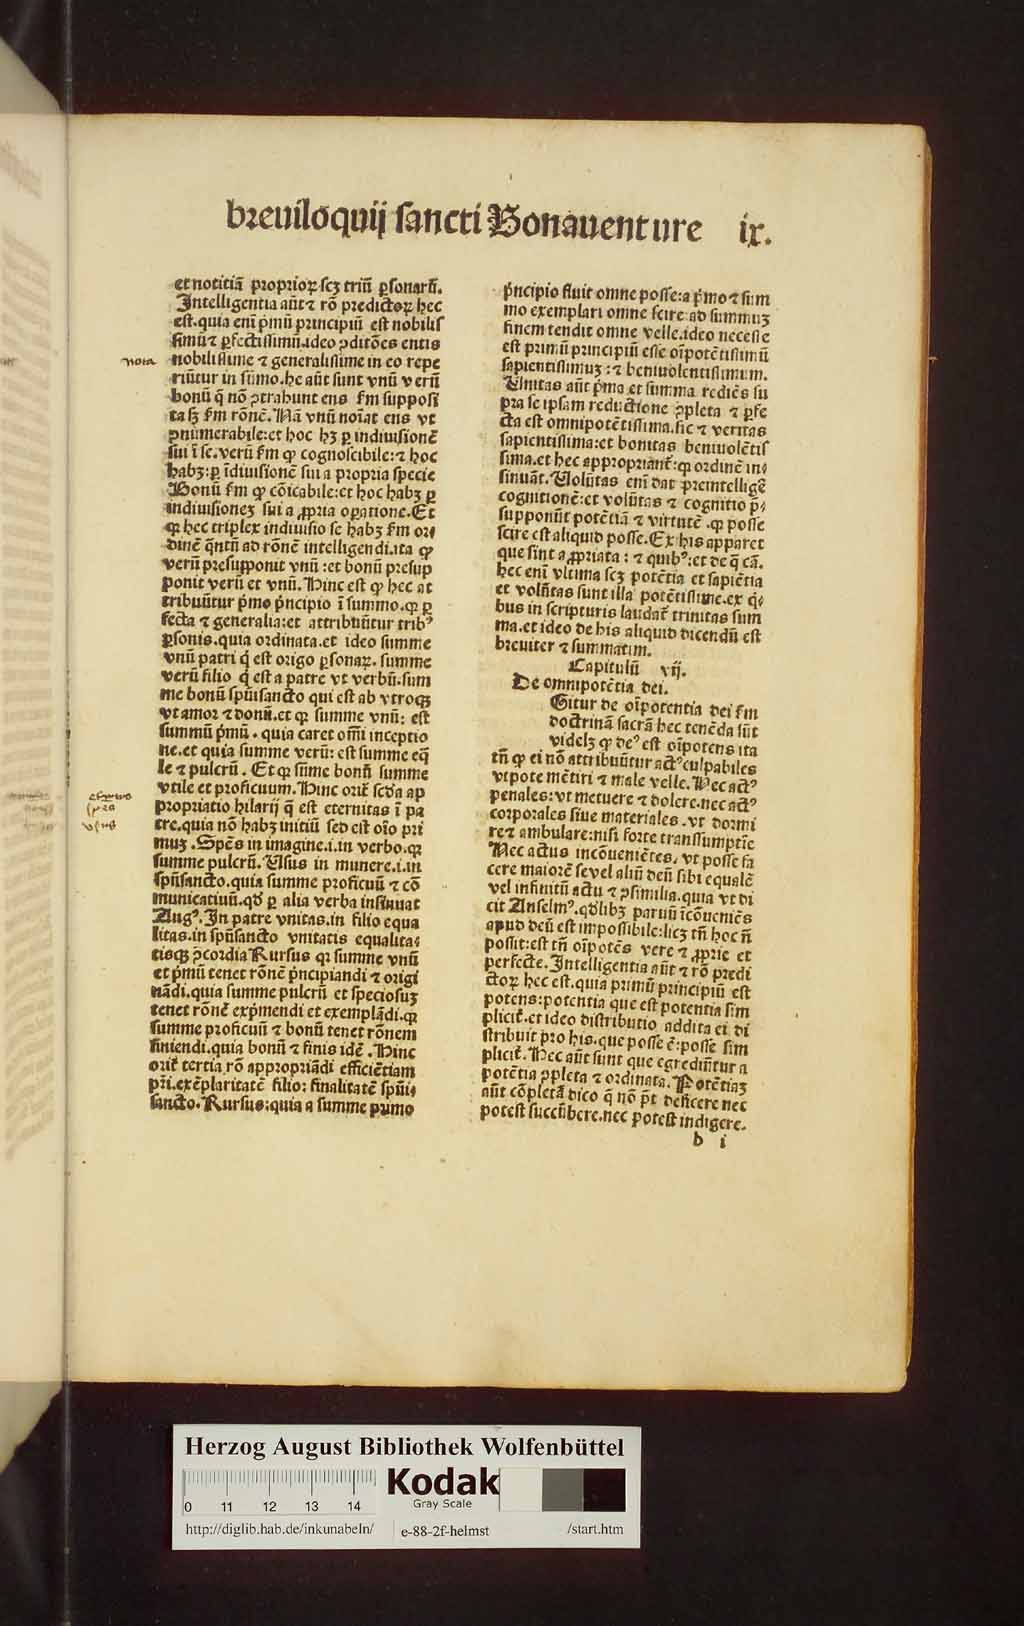 breuiloquij sancti Bonauenture ix.
et notitiā proprioꝝ scꝫ triū ꝑsonarū.
Intelligentia aūt ⁊ rō predictoꝝ hec
est. quia eni p̄mū principiū est nobilis
simū ⁊ ꝑfectissimū. ideo ꝯditōes entis
nobilissime ⁊ generalissime in eo repe
riūtur in sūmo. he aūt sunt vnū verū
bonū q̄ nō ꝯtrahunt ens fm supposi
ta sꝫ fm rōnē. Nā vnū noīat ens vt
ꝯnumerabile: et hoc hꝫ ꝑ indiuisionē
sui ī se. verū fm ꝙ cognoscibile: ⁊ hoc
habꝫ: ꝑ īdiuisionē sui a propria specie
Bonū fm ꝙ cōicabile: et hoc habꝫ ꝑ
indiuisionez sui a ꝓpria oꝑatione. Et
ꝙ hec triplex indiuisio se habꝫ fm or
dinē q̄ntū ad rōnē intelligendi. ita ꝙ
verū presupponit vnū: et bonū presup
ponit verū et vnū. Hinc est ꝙ hec at
tribuūtur p̄mo p̄ncipio ī summo. ꝙ ꝑ
fecta ⁊ generalia: et attribuūtur tribꝰ
ꝑsonis. quia ordinata. et ideo summe
vnū patri q̄ est origo ꝑsonaꝝ. summe
verū filio q̄ est a patre vt verbū. sum
me bonū spūisancto qui est ab vtroqꝫ
vt amor ⁊ donū. et ꝙ summe vnū: est
summū p̄mū. quia caret omī inceptio
ne. et quia summe verū: est summe eq̄
le ⁊ pulcrū. Et ꝙ sūme bonū summe
vtile et proficuum. Hinc orit̄ scd̄a ap
propriatio hilarij q̄ est eternitas ī pa
tre. quia nō habꝫ initiū sed est oīo pri
muꝫ. Spēs in imagine. i. in verbo. ꝙ
summe pulcrū. Usus in munere. i. in
spūsancto. quia summe proficuū ⁊ cō
municatiuū. qd̄ ꝑ alia verba insinuat
Augꝰ. In patre vnitas. in filio equa
litas. in spūsancto vnitatis equalita-
tisqꝫ ꝯcordia Rursus qꝛ summe vnū
et p̄mū tenet rōnē p̄ncipiandi ⁊ origi
nādi. quia summe pulcrū et speciosuꝫ
tenet rōnē exp̄mendi et exemplādi. ꝙ
summe proficuū ⁊ bonū tenet rōnem
finiendi. quia bonū ⁊ finis idē. Hinc
orit̄ tertia rō appropriādi efficiētiam
pr̄i. exēplaritatē filio: finalitatē spūi-
sancto. Rursus: quia a summe primo
p̄ncipio fluit omne posse: a p̄mo ⁊ sum
mo exemplari omne scire ad summuꝫ
finem tendit omne velle. ideo necesse
est primū principiū esse oīpotētissimū
sapientissimuꝫ: ⁊ beniuolentissimum.
Unitas aūt p̄ma et summa rediēs su
pra se ipsam reductione ꝯpleta ⁊ ꝑfe
cta est omnipotētissima. sic ⁊ veritas
sapientissima: et bonitas beniuolētis
sima. et hec appropriant̄: ꝙ ordinē in-
sinuāt. Volūtas eni dat preintelligē
cognitionē: et volūtas ⁊ cognitio p̄-
supponūt potētiā ⁊ virtutē. ꝙ posse
scire est aliquid posse. Ex his apparet
que sint aꝓpriata: ⁊ quibꝰ: et de q̄ cā.
hec eni vltima scꝫ potētia et sapiētia
et volūtas sunt illa potētissime. ex q̄-
bus in scripturis laudat̄ trinitas sum
ma. et ideo de his aliquid dicendū est
breuiter ⁊ summatim.
Capitulū vij.
De omnipotētia dei.
Gitur de oīpotentia dei fm
doctrinā sacrā hec tenēda sūt
videlꝫ ꝙ deꝰ est oīpotens ita
tn̄ ꝙ ei nō attribuūtur actꝰ culpabiles
vtpote mētiri ⁊ male velle. Nec actꝰ
penales: vt metuere ⁊ dolere. nec actꝰ
corporales siue materiales. vt dormi
re ⁊ ambulare: nisi forte transsumptīe
Nec actus incōueniētes. vt posse fa
cere maiorē se vel aliū deū sibi equalē
vel infinitū actu ⁊ ꝯsimilia. quia vt di
cit Anselmꝰ. qd̄libꝫ paruū īcōueniēs
apud deū est impossibile: licꝫ tn̄ hoc n̄
possit: est tn̄ oīpotēs vere ⁊ ꝓprie et
perfecte. Intelligentia aūt ⁊ rō predi
ctoꝝ hec est. quia primū principiū est
potens: potentia que est potentia sim
plicit̄. et ideo distributio addita ei di
stribuit pro his. que posse ē: posse sim
plicit̄. Hec aūt sunt que egrediūtur a
potētia ꝯpleta ⁊ ordinata. Potētiaꝫ
aūt cōpletā dico q̄ nō pt̄ deficere nec
potest succūbere. nec potest indigere.
b i
nota
Herzog August Bibliothek Wolfenbüttel
0 11 12 13 14
Kodak
Gray Scale
http://diglib.hab.de/inkunabeln/ e-88-2f-helmst /start.htm